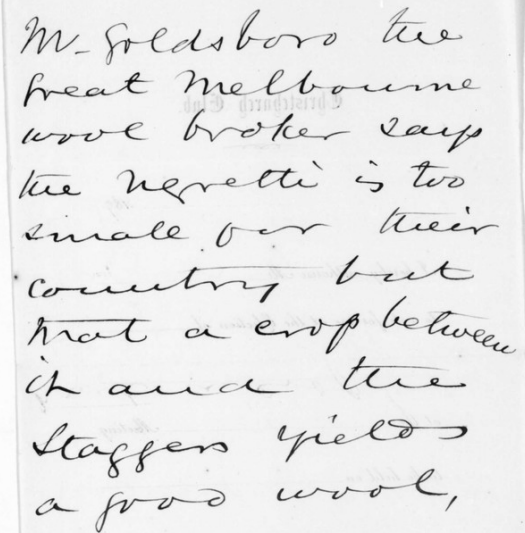 Mr Goldsboro the
great Melbourne
wool broker says
the Negretti is too
small for their
country but
that a crop between
it and the
Staggers yields
a good wool,
Christchurch
Club.